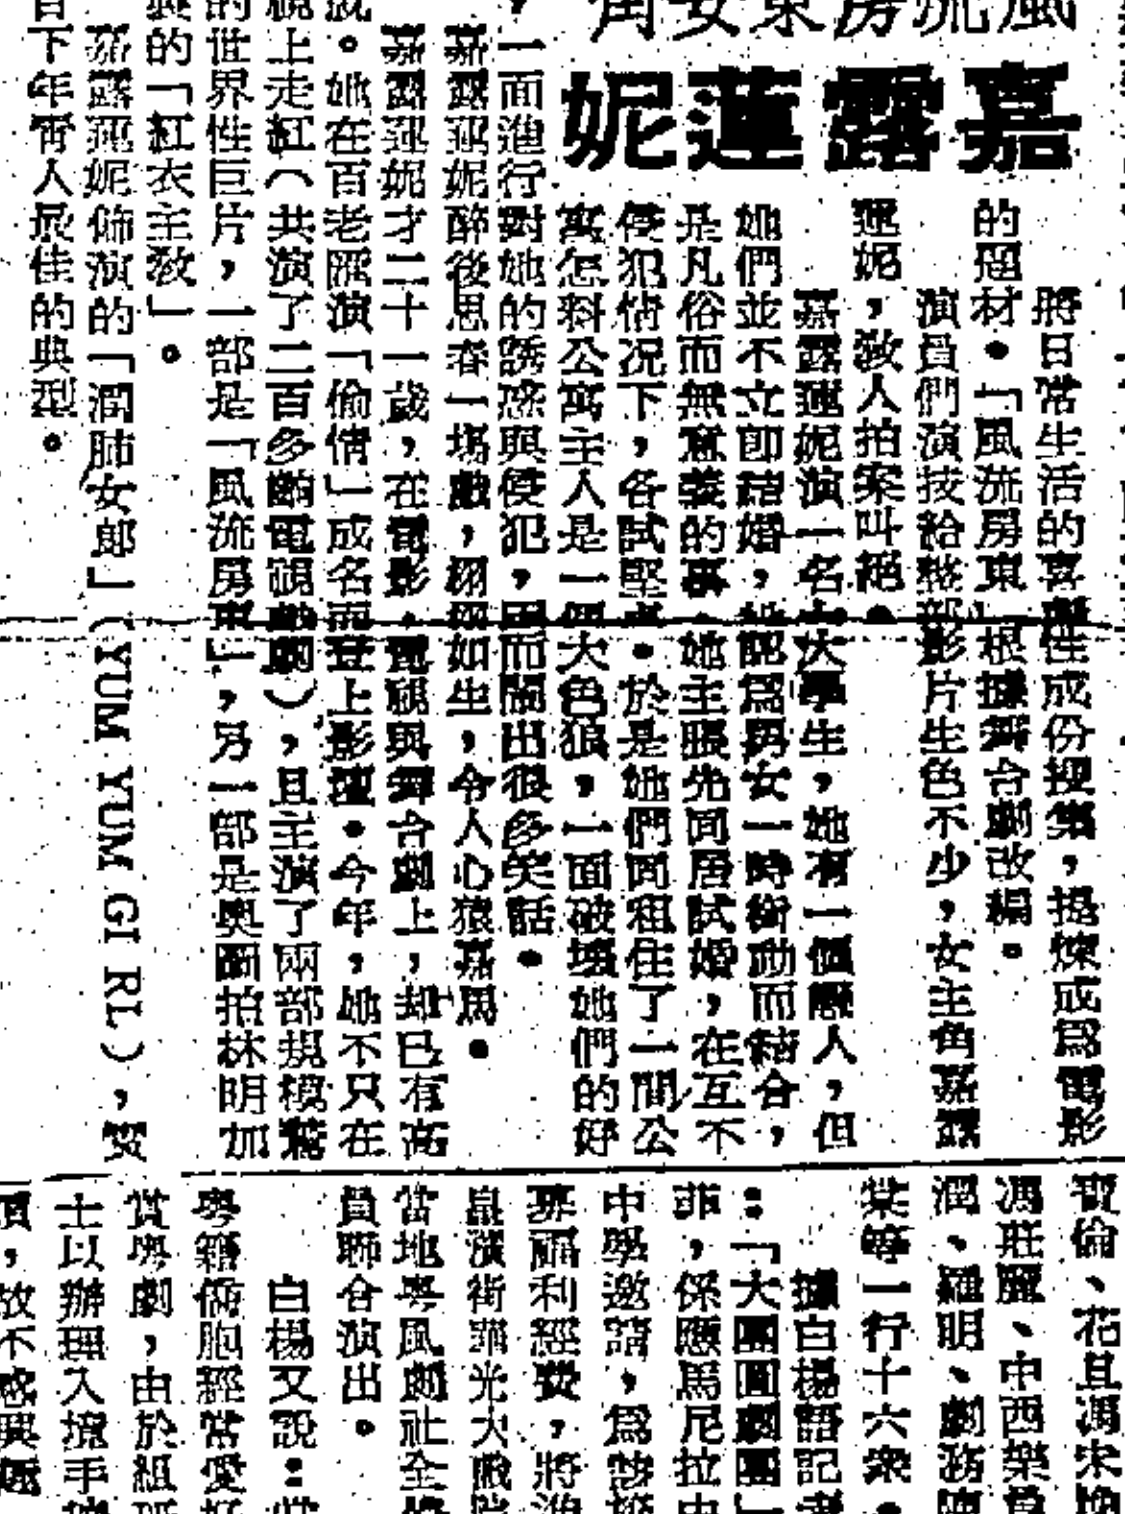 風流房東女角
嘉露蓮妮
將日常生活的喜劇性成份搜集，提煉成爲電影
的題材。「風流房東」根據舞台劇改編。
演員們演技給整部影片生色不少，女主角嘉露
蓮妮，敎人拍案叫絕。
嘉露蓮妮演一名大學生，她有一個戀人，但
她們並不立卽結婚，她認爲男女一時衝動而結合，
是凡俗而無意義的事。她主張先同居試婚，在互不
侵犯情況下，各試堅貞。於是她們同租住了一間公
寓怎料公寓主人是一個大色狼，一面破壞她們的好
，一面進行對她的誘惑與侵犯，因而鬧出很多笑話。
嘉露蓮妮醉後思春一塲戲，栩栩如生，令人心猿意馬。
嘉露蓮妮才二十一歲，在電影、電視與舞台劇上，却已有高
。她在百老匯演「偷情」成名而登上影壇。今年，她不只在
視上走紅（共演了二百多齣電視戲劇），且主演了兩部規模龐
的世界性巨片，一部是「風流房東」，另一部是奧圖拍林明加
的「紅衣主敎」。
嘉露蓮妮飾演的「潤肺女郎」（YUM YUM GI RL），
下年靑人最佳的典型。
寶倫、花旦馮宋
馮莊麗、中西樂
潤、羅明、劇務陳
棠等一行十六衆。
據白楊語記者
：「大團圓劇團」
菲，係應馬尼拉中
中學邀請，爲該校
福利經費，將
演街華光大戲院
當地粵風劇社全
員聯合演出。
白楊又說：
粤籍僑胞經常愛好
賞粤劇，由於組
士以辦理入境手
，故不感興